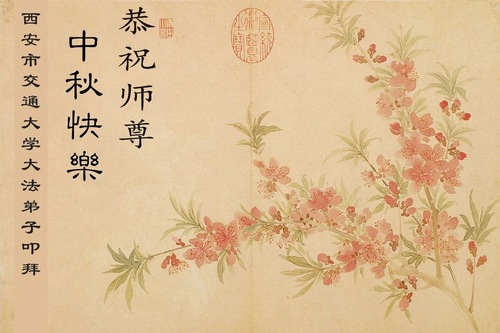 恭祝师尊
中秋快樂
西安市交通大学大法弟子叩拜